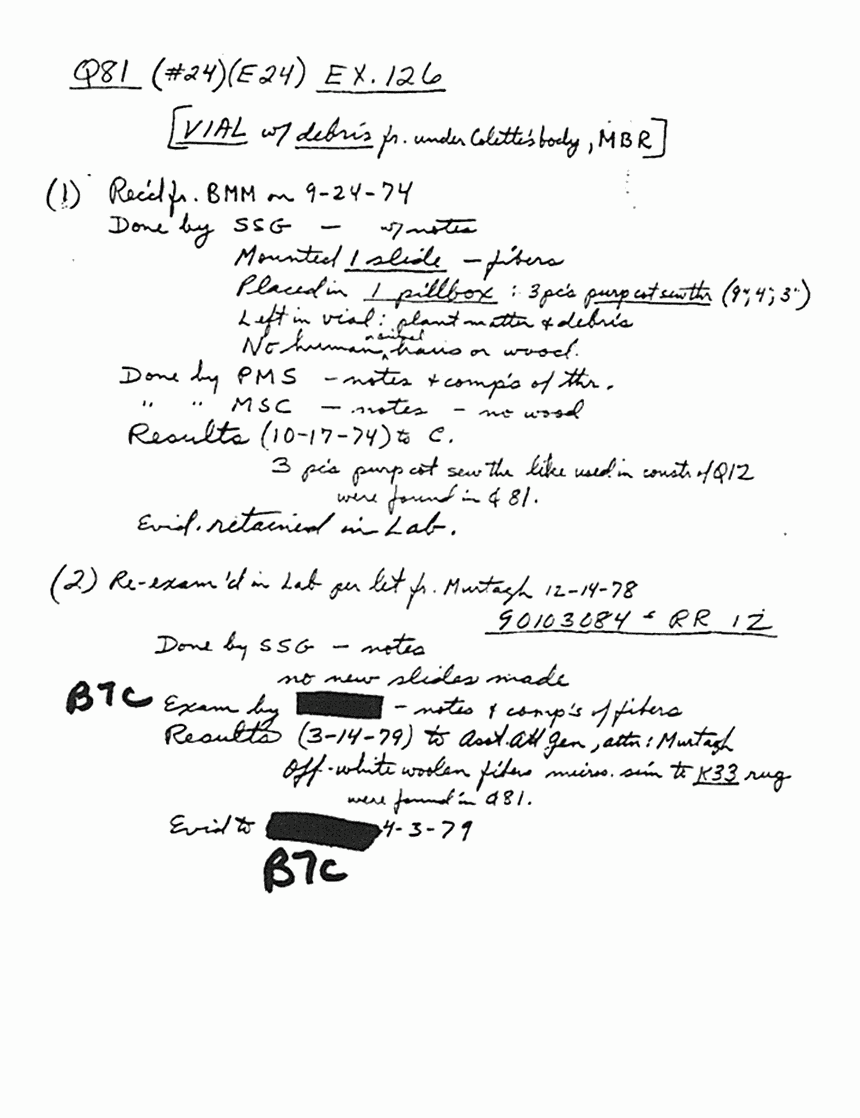 Q81 (#24)(E24) EX. 126
[VIAL w/ debris fr. under Colette's body, MBR]
(1) Rec'd fr. BMM on 9-24-74
Done by SSG — w/ notes
Mounted 1 slide — fibers
Placed in 1 pillbox : 3 pc's purp cot sew thr (9", 4", 3")
Left in vial : plant matter & debris
No human, animal hairs or wood.
Done by PMS — notes & comp's of thr.
" " MSC — notes — no wood
Results (10-17-74) to C.
3 pc's purp cot sew thr like used in constr of Q12
were found in Q81.
Evid. retained in Lab.
(2) Re-exam'd in Lab per let fr. Murtagh 12-14-78
90103084 RR 12
Done by SSG — notes
no new slides made
B7C Exam by — notes & comp's of fibers
Results (3-14-79) to Asst. Att Gen, attn: Murtagh
Off-white woolen fibers micros. sim to K33 rug
were found in Q81.
Evid to 4-3-79
B7C